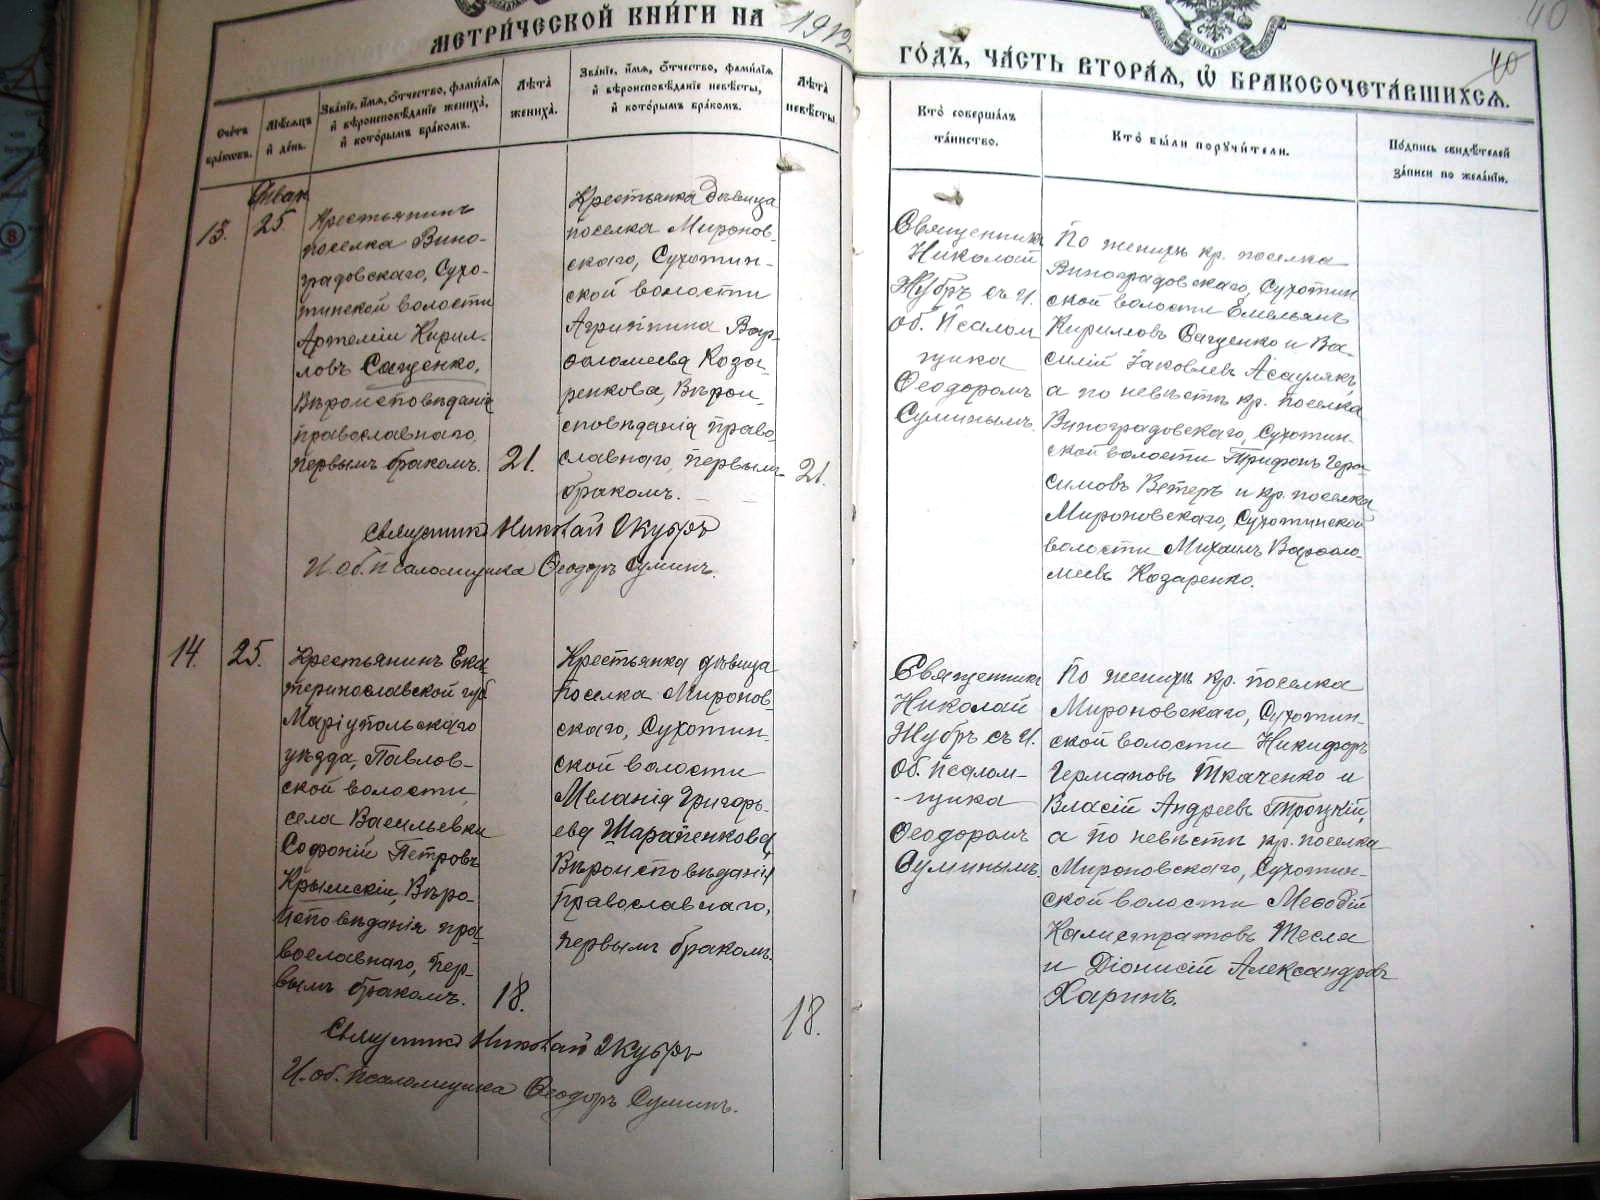 МЕТРИ́ЧЕСКОЙ КНИ́ГИ НА 1912
ГО́ДЪ, ЧА́СТЬ ВТОРА́Я, Ѡ҆ БРАКОСОЧЕТА́ВШИХСЯ.
40
40
Сче́тъ
бра́ковъ.
Мѣ́сяцъ
и҆ де́нь.
Зва́нїе, и҆́мя, ѻ҆́тчество, фами́лїя
и҆ вѣроисповѣ́данїе жениха̀,
и҆ кото́рымъ бра́комъ.
Лѣ́та
жениха̀.
Зва́нїе, и҆́мя, ѻ҆́тчество, фами́лїя
и҆ вѣроисповѣ́данїе невѣ́сты,
и҆ кото́рымъ бра́комъ.
Лѣ́та
невѣ́сты.
Кто̀ соверша́лъ
та́инство.
Кто̀ бы́ли поручи́тели.
По́дпись свидѣ́телей
за́писи по жела́нїю.
13.
Январ
25.
Крестьянинъ
поселка Вино-
градовскаго, Сухо-
тинской волости
Артемій Кирил-
ловъ Сащенко,
Вѣроисповѣданія
православнаго,
первымъ бракомъ.
21.
Крестьянка дѣвица
поселка Миронов-
скаго, Сухотин-
ской волости
Агриппина Вар-
ѳоломеева Коза-
ренкова, Вѣрои-
сповѣданія право-
славнаго, первымъ
бракомъ.
21.
Священникъ
Николай
Жубръ съ И.
об. Псалом
щика
Ѳеодоромъ
Суминымъ.
По женихѣ кр. поселка
Виноградовскаго, Сухотин
ской волости Емельянъ
Кирилловъ Сащенко и Ва-
силій Іаковлевъ Асаулякъ,
а по невѣстѣ кр. поселка
Виноградовскаго, Сухотин-
ской волости Трифонъ Гера-
симовъ Ветеръ и кр. поселка
Мироновскаго, Сухотинской
волости Михаилъ Варѳоло-
меевъ Козаренко.
Священникъ Николай Жубръ
И. об. псаломщика Ѳеодоръ Суминъ.
14.
25.
Крестьянинъ Ека
теринославской губ
Маріупольскаго
уѣзда, Павлов-
ской волости
села Васильевки
Софоній Петровъ
Крымскій, Вѣро-
исповѣданія пра-
вославнаго, пер-
вымъ бракомъ.
18.
Крестьянка дѣвица
поселка Миронов-
скаго, Сухотин-
ской волости
Меланія Григорь-
ева Шарапенкова,
Вѣроисповѣданія
православнаго,
первымъ бракомъ.
18.
Священникъ
Николай
Жубръ съ И.
об. псалом-
-щика
Ѳеодоромъ
Суминымъ.
По женихѣ кр. поселка
Мироновскаго, Сухотин-
ской волости Никифоръ
Германовъ Ткаченко и
Власій Андреевъ Троцкій,
а по невѣстѣ кр. поселка
Мироновскаго, Сухотин-
ской волости Меѳодій
Калистратовъ Тесла
и Діонисій Александровъ
Харинъ.
Священникъ Николай Жубръ
И. об. псаломщика Ѳеодоръ Суминъ.